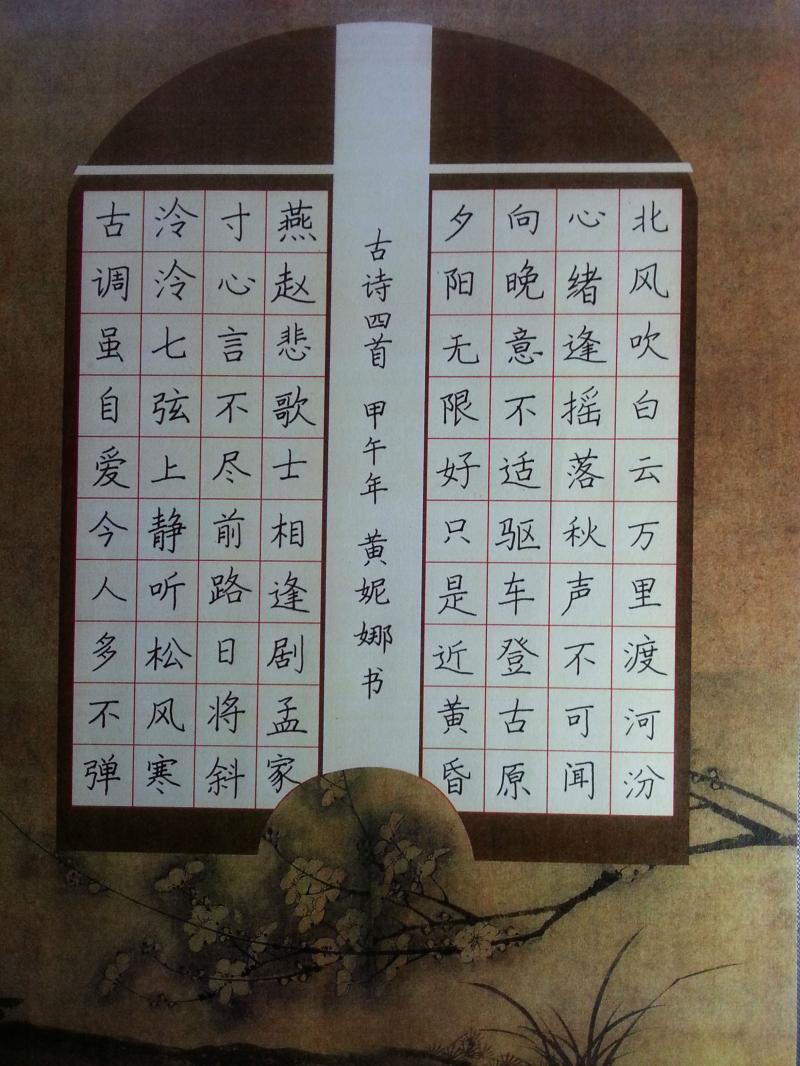 北风吹白云万里渡河汾
心绪逢摇落秋声不可闻
向晚意不适驱车登古原
夕阳无限好只是近黄昏
古诗四首 甲午年 黄妮娜书
燕赵悲歌士相逢剧孟家
寸心言不尽前路日将斜
泠泠七弦上静听松风寒
古调虽自爱今人多不弹